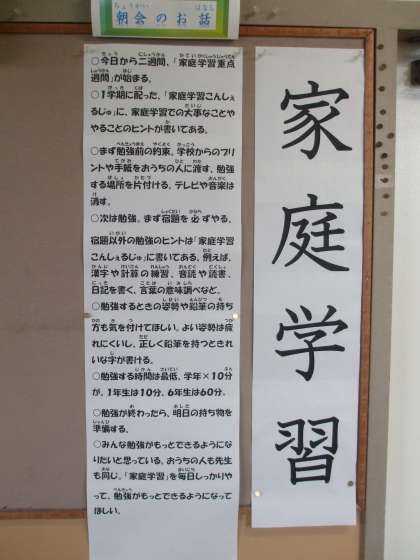 朝会のお話
○今日から二週間、「家庭学習重点
週間」が始まる。
○1学期に配った、「家庭学習こんしぇ
るじゅ」に、家庭学習での大事なことや
やることのヒントが書いてある。
○まず勉強前の約束。学校からのプリ
ントや手紙をおうちの人に渡す、勉強
する場所を片付ける、テレビや音楽は
消す。
○次は勉強。まず宿題を必ずやる。
宿題以外の勉強のヒントは「家庭学習
こんしぇるじゅ」に書いてある。例えば、
漢字や計算の練習、音読や読書、
日記を書く、言葉の意味調べなど。
○勉強するときの姿勢や鉛筆の持ち
方も気を付けてほしい。よい姿勢は疲
れにくいし、正しく鉛筆を持つときれ
いな字が書ける。
○勉強する時間は最低、学年×10分
が、1年生は10分、6年生は60分。
○勉強が終わったら、明日の持ち物を
準備する。
○みんな勉強がもっとできるようにな
りたいと思っている。おうちの人も先生
も同じ。「家庭学習」を毎日しっかりや
って、勉強がもっとできるようになって
ほしい。
家庭学習